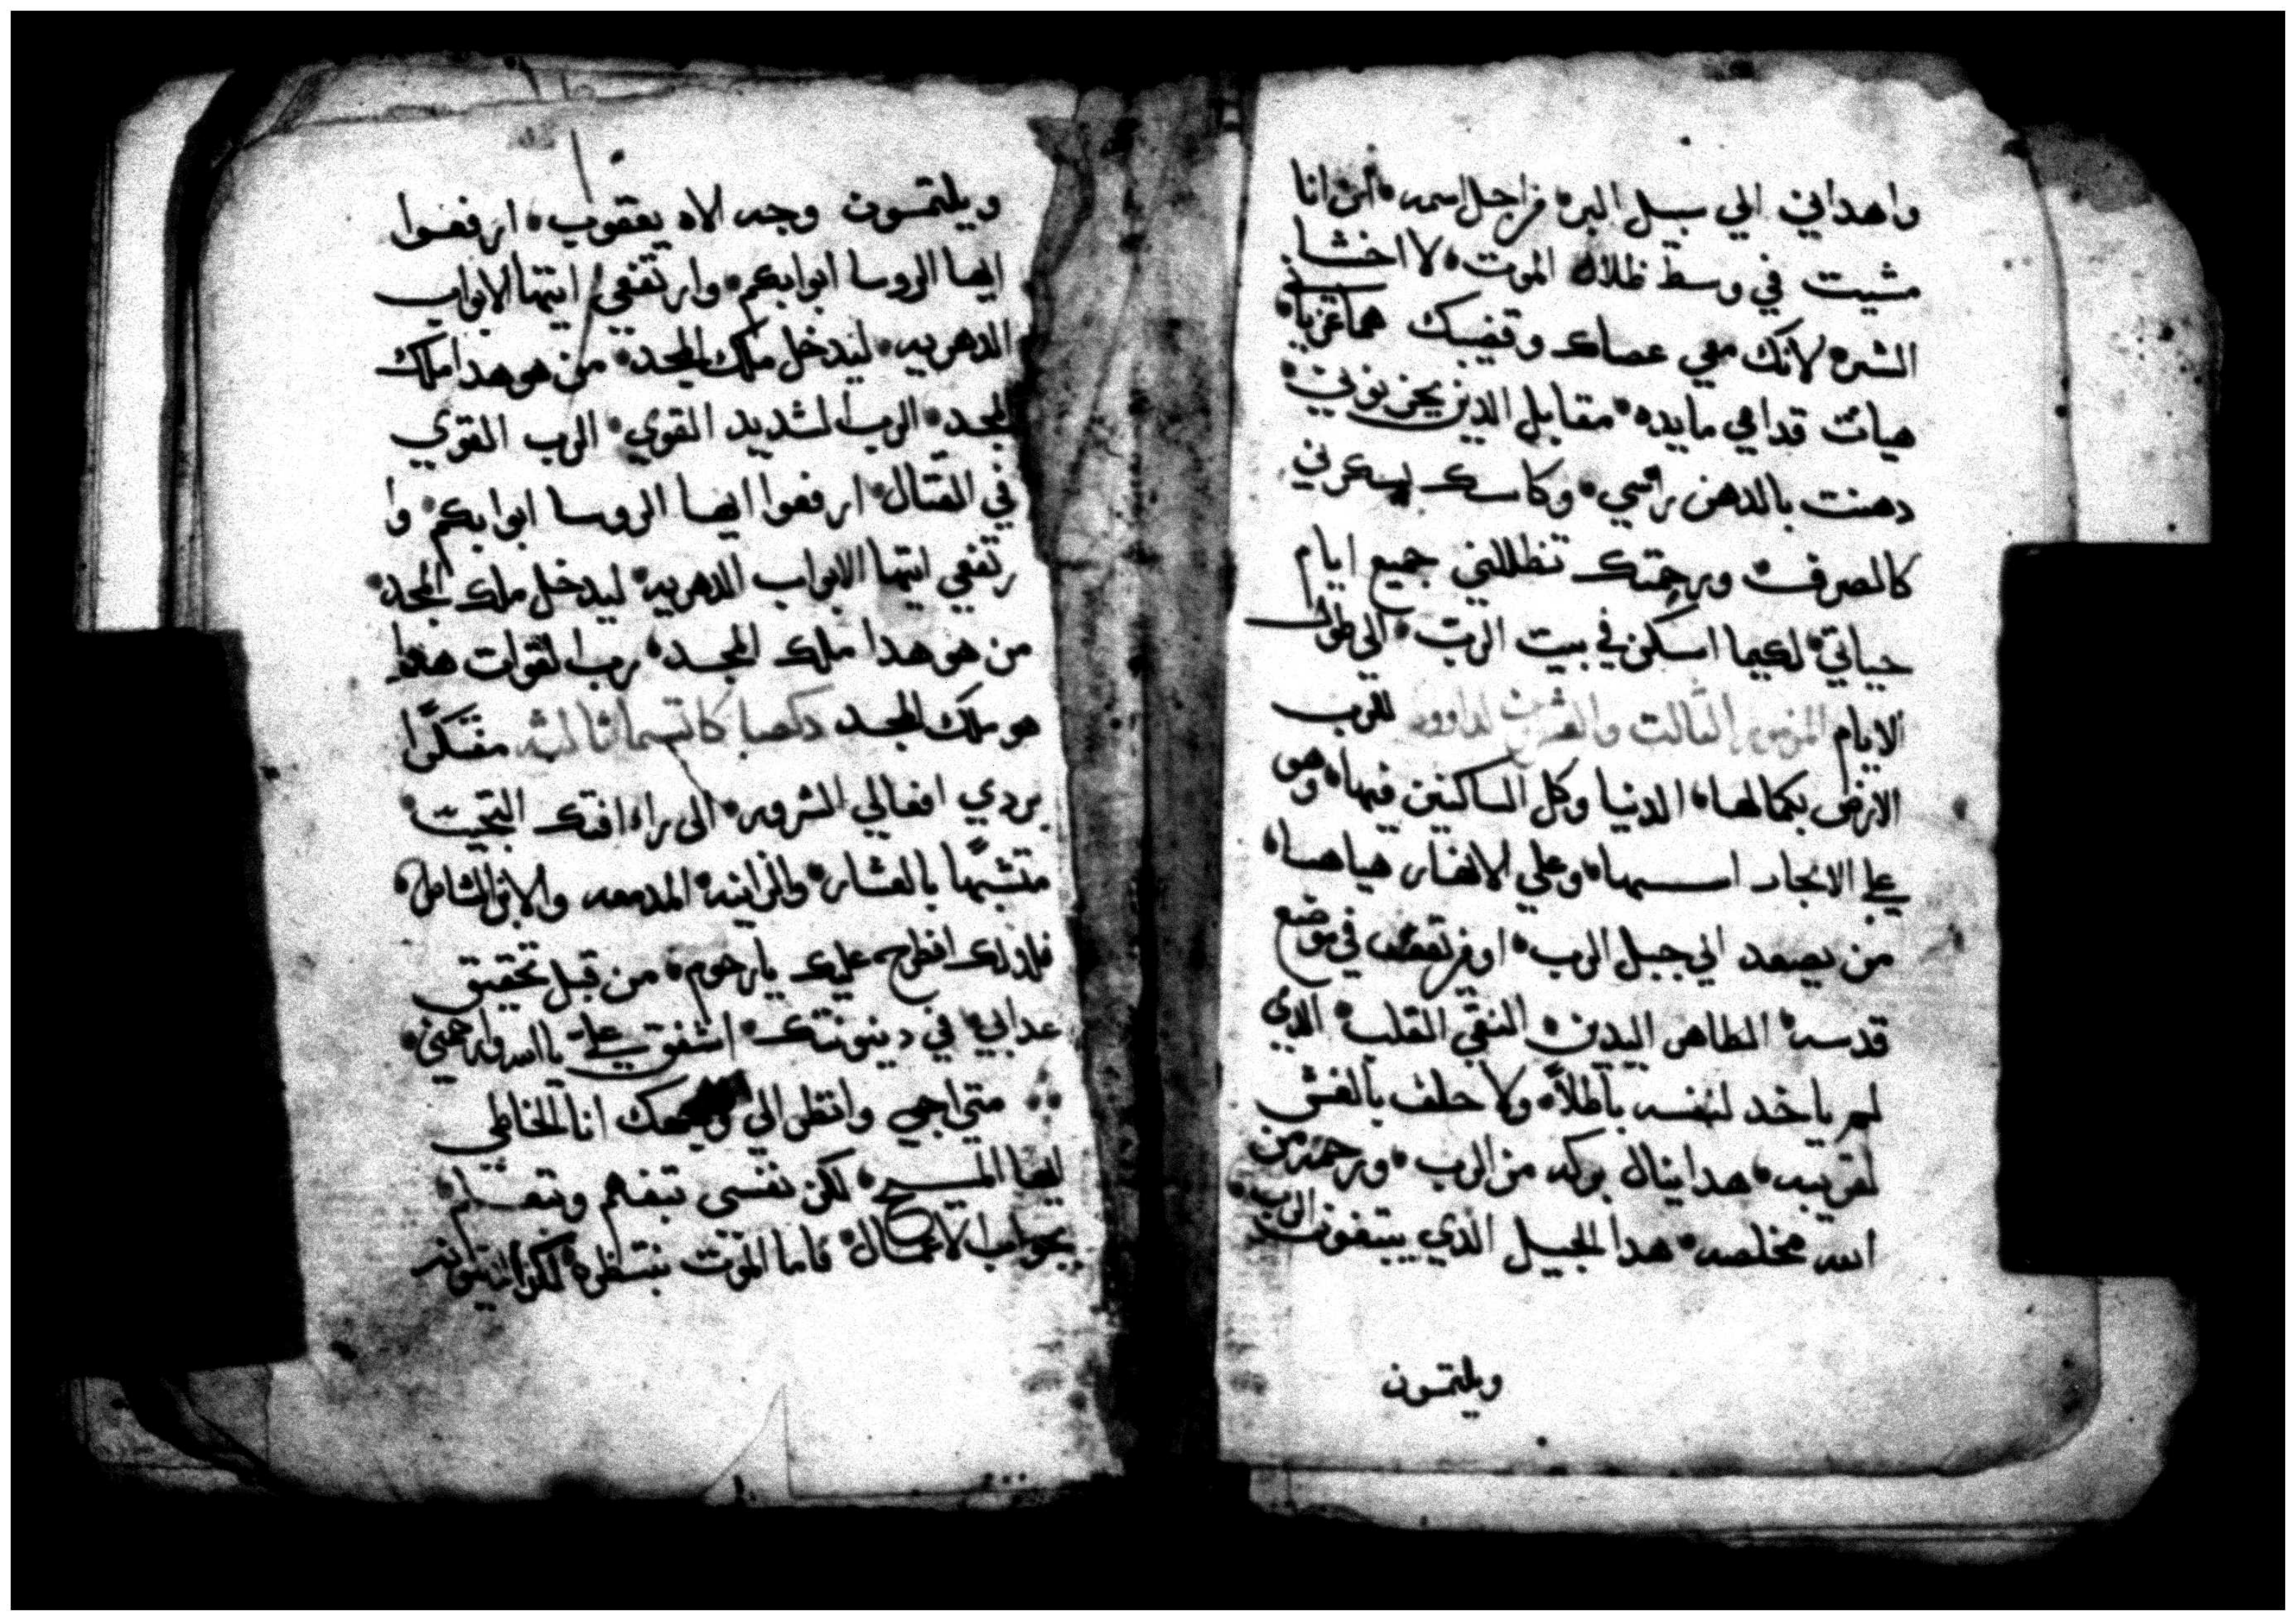 واهداني الي سبل البر۰ من اجل اسمه۰ أن انا
مشيت في وسط ظلال الموت۰ لا اخشا
الشر۰ لانك معي عصاك وقضيبك هما عزياني۰
هيات قدامي مايده۰ مقابل الدين يحزنوني۰
دهنت بالدهن راسي۰ وكاسك يسكرني
كالصرف۰ ورحمتك تظللني جميع ايام
حياتي۰ لكيما اسكن في بيت الرب۰ الي طول
الايام المزمور الثالت والعشرين لداوود للرب
الارض بكمالها۰ الدنيا وكل الساكنين فيها۰ وهو
علي الابحار اسسها۰ وعلي الانهار هياها۰
من يصعد الي جبل الرب۰ او من يقف في موضع
قدسه۰ الطاهر اليدين۰ النقي القلب۰ الدي
لم ياخد لنفسه باطلاً۰ ولا حلف بالغش
لقريبه۰ هدا ينال بركه من الرب۰ ورحمه من
الله مخلصه۰ هدا الجيل الدي يبتغون الرب۰
ويلتمسون
ويلتمسون وجه الاه يعقوب۰ ارفعوا
ايها الروسا ابوابكم۰ وارتفعي ايتها الابواب
الدهريه۰ ليدخل ملك المجد۰ من هو هدا ملك
المجد۰ الرب الشديد القوي۰ الرب القوي
في القتال۰ ارفعوا ايها الروسا ابوابكم۰ وا
رتفعي ايتها الابواب الدهريه۰ ليدخل ملك المجد۰
من هو هدا ملك المجد۰ رب القوات هدا
هو ملك المجد دكصا كاتسما ثالثه مفتكرًا
بردي افعالي الشرور۰ الى راافتك التجيت۰
متشبهًا بالعشار۰ والزانيه۰ المدمعه والابن الشاطر۰
فلدلك انطرح عليك يارحوم۰ من قبل تحقيق
عدابي۰ في دينونتك۰ اشفق علي ياالله وارحمني۰
متى اجي وانظر الي انا الخاطي
ايها المسيح۰ لكن نفسي تبفهم وتعلم۰
بجواب الاعمال۰ فاما الموت ننتظره۰ لكن